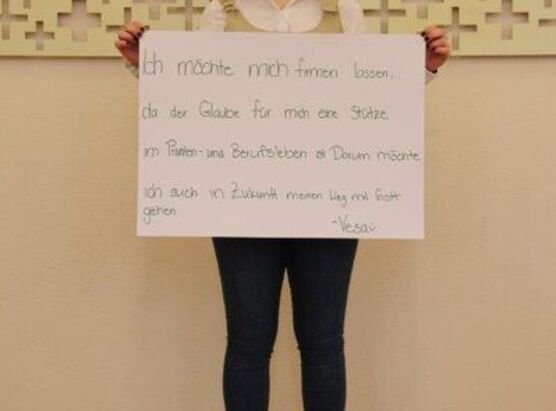 Ich möchte mich firmen lassen,
da der Glaube für mich eine Stütze
im Privaten- und Berufsleben ist Darum möchte
ich auch in Zukunft meinen Weg mit Gott
gehen
-Vesa